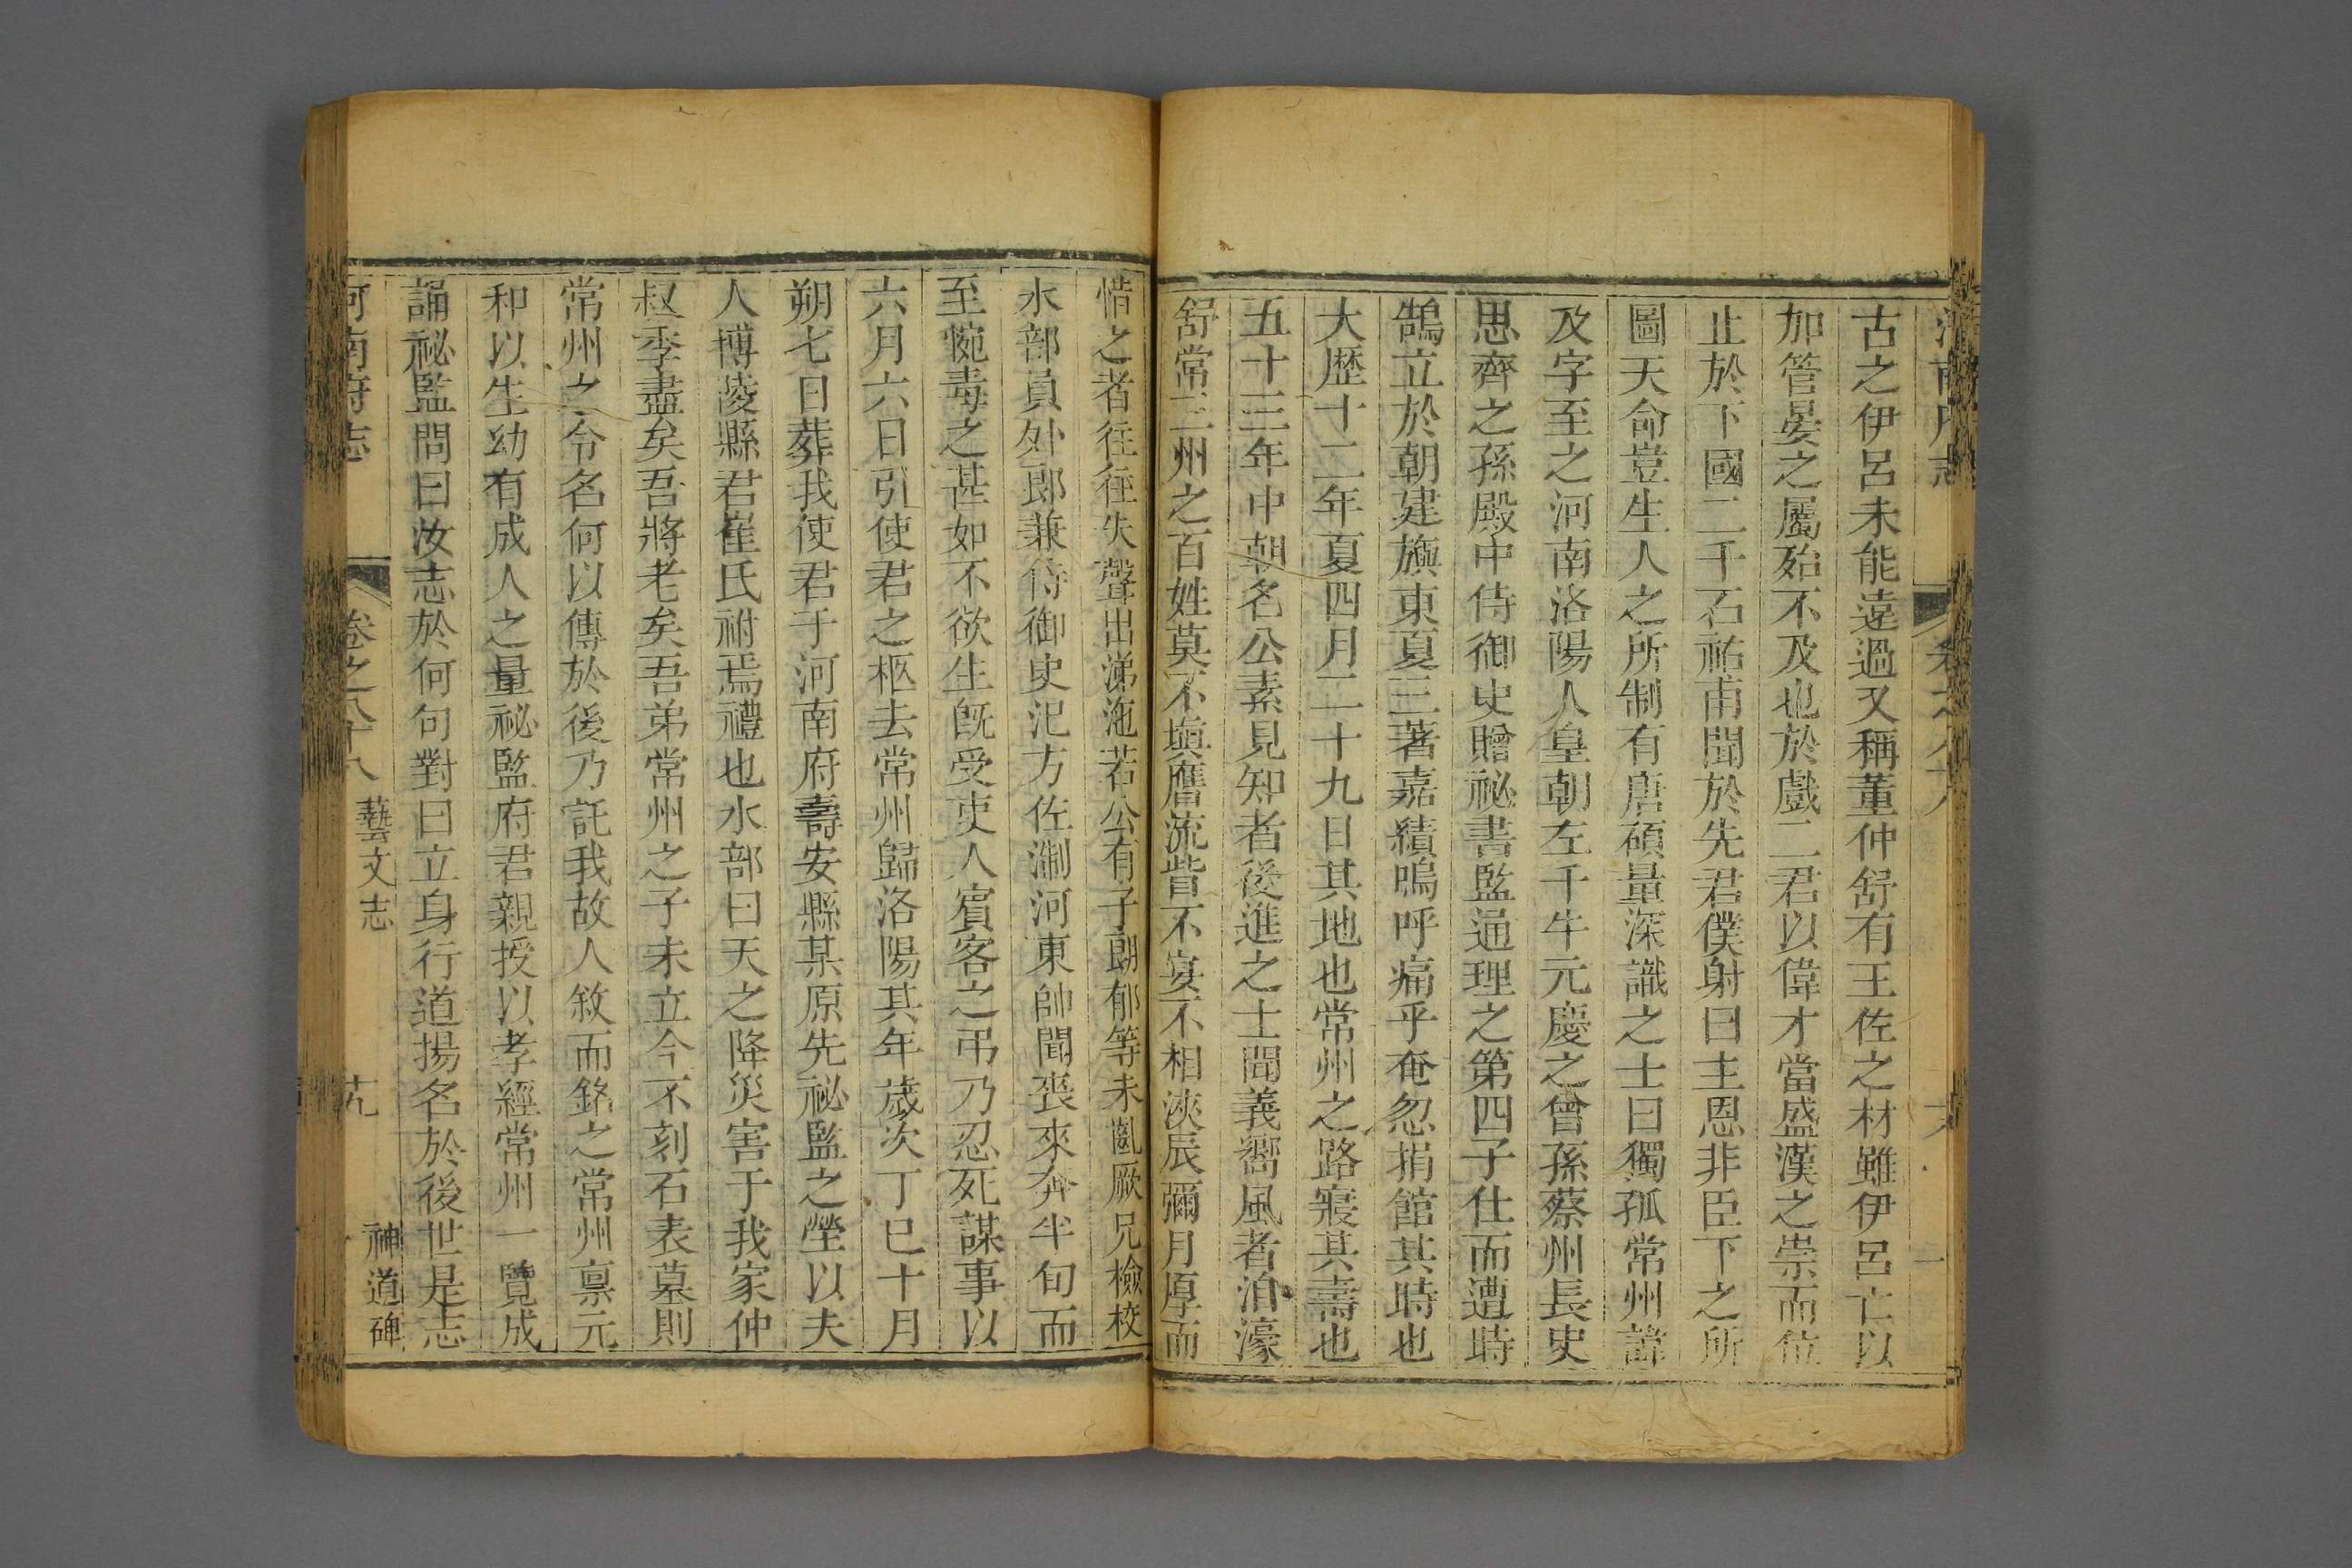 古之伊呂未能遠過又稱董仲舒有王佐之材雖伊呂亡以
加管晏之屬殆不及也於戲二君以偉才當盛漢之崇而位
止於下國二千石祐甫聞於先君僕射曰主恩非臣下之所
圖天命豈生人之所制有唐碩量深識之士曰獨孤常州諱
及字至之河南洛陽人皇朝左千牛元慶之曾孫蔡州長史
思齊之孫殿中侍御史贈祕書監通理之第四子仕而遭時
鵠立於朝建旟東夏三著嘉績嗚呼痛乎奄忽捐館其時也
大歷十二年夏四月二十九日其地也常州之路寢其壽也
五十三年中朝名公素見知者後進之士聞義嚮風者洎濠
舒常三州之百姓莫不塡膺流眥不宴不相浹辰彌月厚而
惜之者往往失聲出涕沲若公有子朗郁等未齓厥兄檢校
水部員外郎兼侍御史汜方佐淛河東帥聞喪來奔半旬而
至惋毒之甚如不欲生旣受吏人賓客之弔乃忍死謀事以
六月六日引使君之柩去常州歸洛陽其年歲次丁巳十月
朔七日葬我使君于河南府壽安縣某原先祕監之塋以夫
人博陵縣君崔氏祔焉禮也水部曰天之降災害于我家仲
叔季盡矣吾將老矣吾弟常州之子未立今不刻石表墓則
常州之令名何以傳於後乃託我故人敘而銘之常州禀元
和以生幼有成人之量祕監府君親授以孝經常州一覽成
誦祕監問曰汝志於何句對曰立身行道揚名於後世是志
河南府志 卷之八十八 藝文志 神道碑